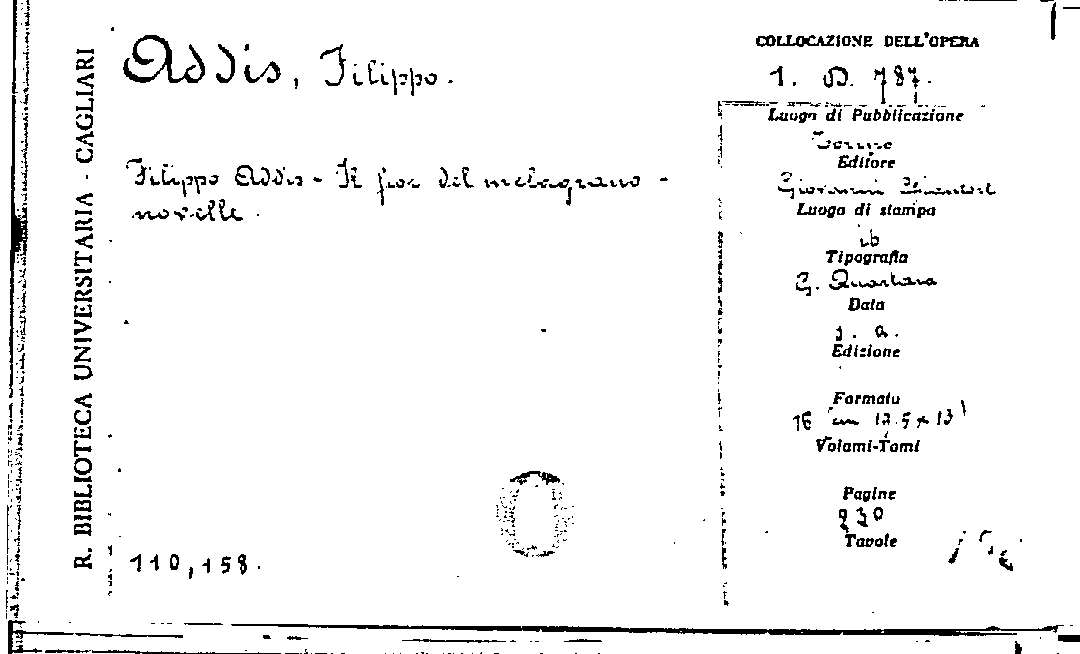 R. BIBLIOTECA UNIVERSITARIA - CAGLIARI
Addis, Filippo.
Filippo Addis - Il fior del melagrano -
novelle.
110,158.
COLLOCAZIONE DELL'OPERA
1. D. 787.
Luogo di Pubblicazione
Torino
Editore
Giovanni
Luogo di stampa
ib
Tipografia
G. Quartara
Data
s. a.
Edizione
Formato
16
Volumi-Tomi
Pagine
230
Tavole